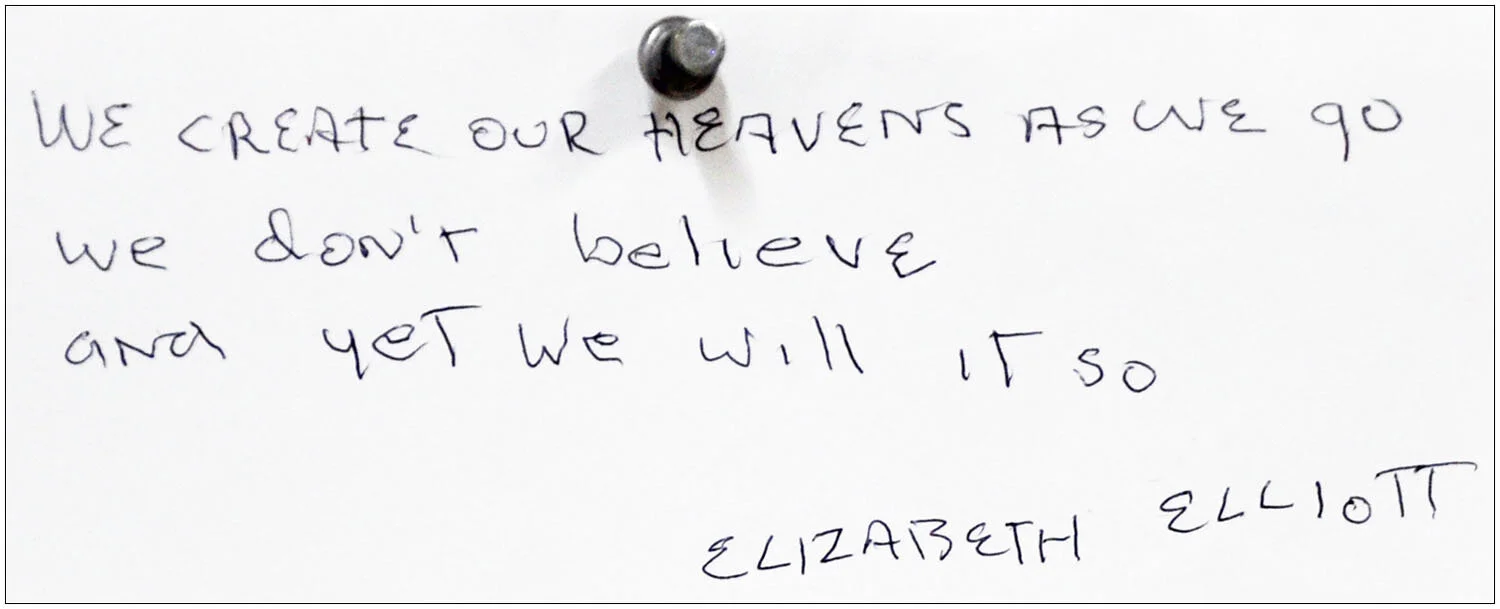 WE CREATE OUR HEAVENS AS WE go
we don't believe
and yet we will it so
ELIZABETH ELLIOTT